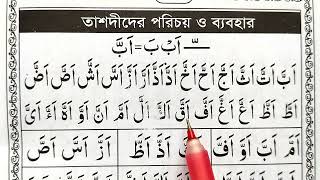 তাশদীদের পরিচয় ও ব্যবহার
ـّـ اَبْ بَ = اَبَّ
اَبَّ اَتَّ اَثَّ اَجَّ اَحَّ اَخَّ اَدَّ اَذَّ اَرَّ اَزَّ اَسَّ اَشَّ اَصَّ اَضَّ
اَطَّ اَظَّ اَعَّ اَغَّ اَفَّ اَقَّ اَلَّ اَمَّ اَنَّ اَوَّ اَهَّ اَءَّ اَىَّ
اَمَّ اَبَّ اَوَّ اَفَّ اَذَّ اَظَّ اَزَّ اَسَّ اَصَّ